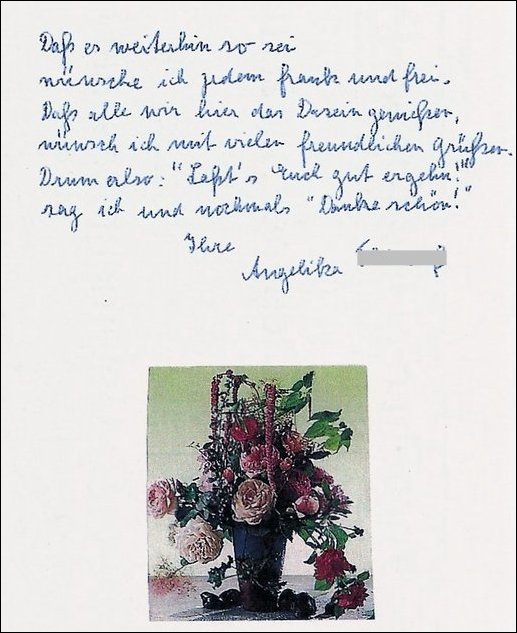 Daß es weiterhin so sei
wünsche ich jedem frank und frei.
Daß alle wir hier das Dasein genießen,
wünsch ich mit vielen freundlichen Grüßen.
Drum also: "Laßt's Euch gut ergehn!"
sag ich und nochmals "Danke schön!"
Ihre
Angelika